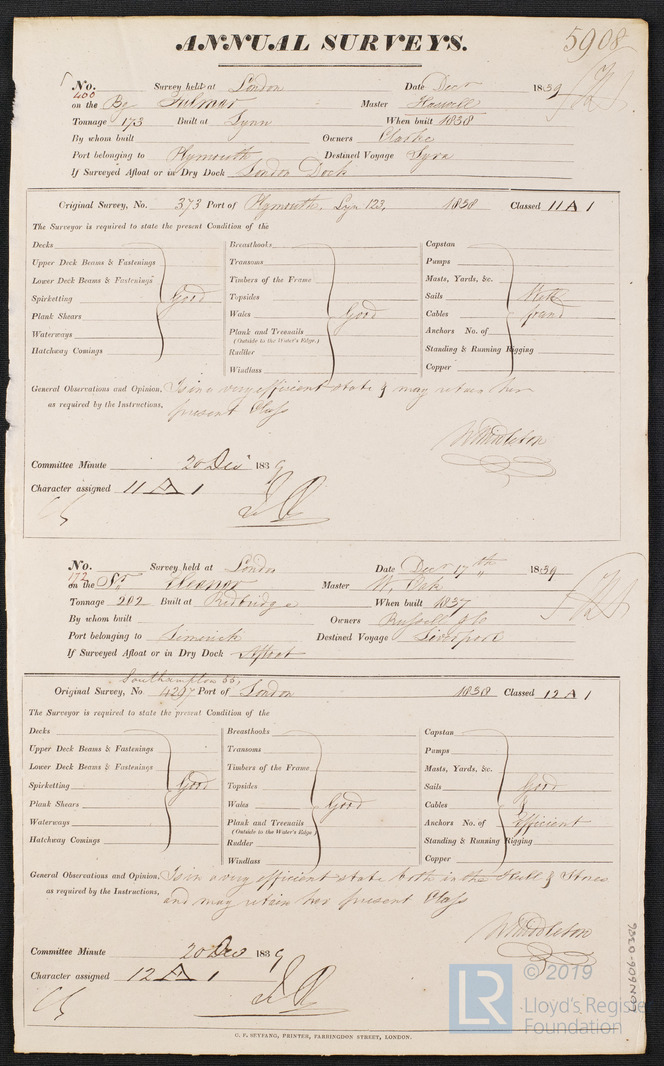 ANNUAL SURVEYS.
5908
No. 400 Survey held at London Date Decr 1839
on the Bg Fulmar Master
Tonnage 173 Built at Lynn When built 1838
By whom built Owners Clarke
Port belonging to Plymouth Destined Voyage Syra
If Surveyed Afloat or in Dry Dock London Dock
Original Survey, No. 373 Port of Plymouth, Lyn 123, 1838 Classed 11 A 1
The Surveyor is required to state the present Condition of the
Decks
Upper Deck Beams & Fastenings
Lower Deck Beams & Fastenings
Spirketting Good
Plank Shears
Waterways
Hatchway Comings
Breasthooks
Transoms
Timbers of the Frame
Topsides
Wales Good
Plank and Treenails
(Outside to the Water's Edge.)
Rudder
Windlass
Capstan
Pumps
Masts, Yards, &c.
Sails Well
Cables found
Anchors No. of
Standing & Running Rigging
Copper
General Observations and Opinion, Is in a very efficient state & may retain her
as required by the Instructions, present Class
W Middleton
Committee Minute 20 Decr 1839
Character assigned 11 A 1
No. 172 Survey held at London Date Decr 17th 1839
on the Sr Eleanor Master W. Oak
Tonnage 202 Built at Redbridge When built 1837
By whom built Owners Russell & Co
Port belonging to Limerick Destined Voyage Liverpool
If Surveyed Afloat or in Dry Dock Afloat
Southampton 55,
Original Survey, No. 4297 Port of London 1838 Classed 12 A 1
The Surveyor is required to state the present Condition of the
Decks
Upper Deck Beams & Fastenings
Lower Deck Beams & Fastenings
Spirketting Good
Plank Shears
Waterways
Hatchway Comings
Breasthooks
Transoms
Timbers of the Frame
Topsides
Wales Good
Plank and Treenails
(Outside to the Water's Edge.)
Rudder
Windlass
Capstan
Pumps
Masts, Yards, &c.
Sails Good
Cables &
Anchors No. of Efficient
Standing & Running Rigging
Copper
General Observations and Opinion, Is in a very efficient state both in the Hull & Stores
as required by the Instructions, and may retain her present Class
W Middleton
Committee Minute 20 Dec 1839
Character assigned 12 A 1
C. F. SEYFANG, PRINTER, FARRINGDON STREET, LONDON.
LON606-0386
LR © 2019
Lloyd's Register
Foundation